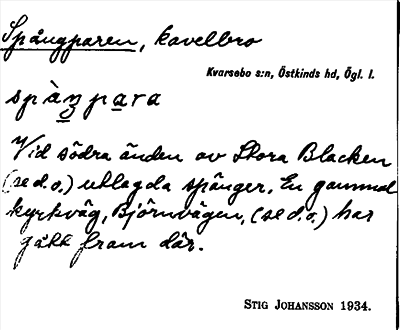 Spångparen, kavelbro
Kvarsebo s:n, Östkinds hd, Ögl. l.
spàŋpara
Vid södra änden av Stora Blacken
(se d. o.) utlagda spänger. En gammal
kyrkväg, Björnvägen, (se d. o.) har
gått fram där.
STIG JOHANSSON 1934.